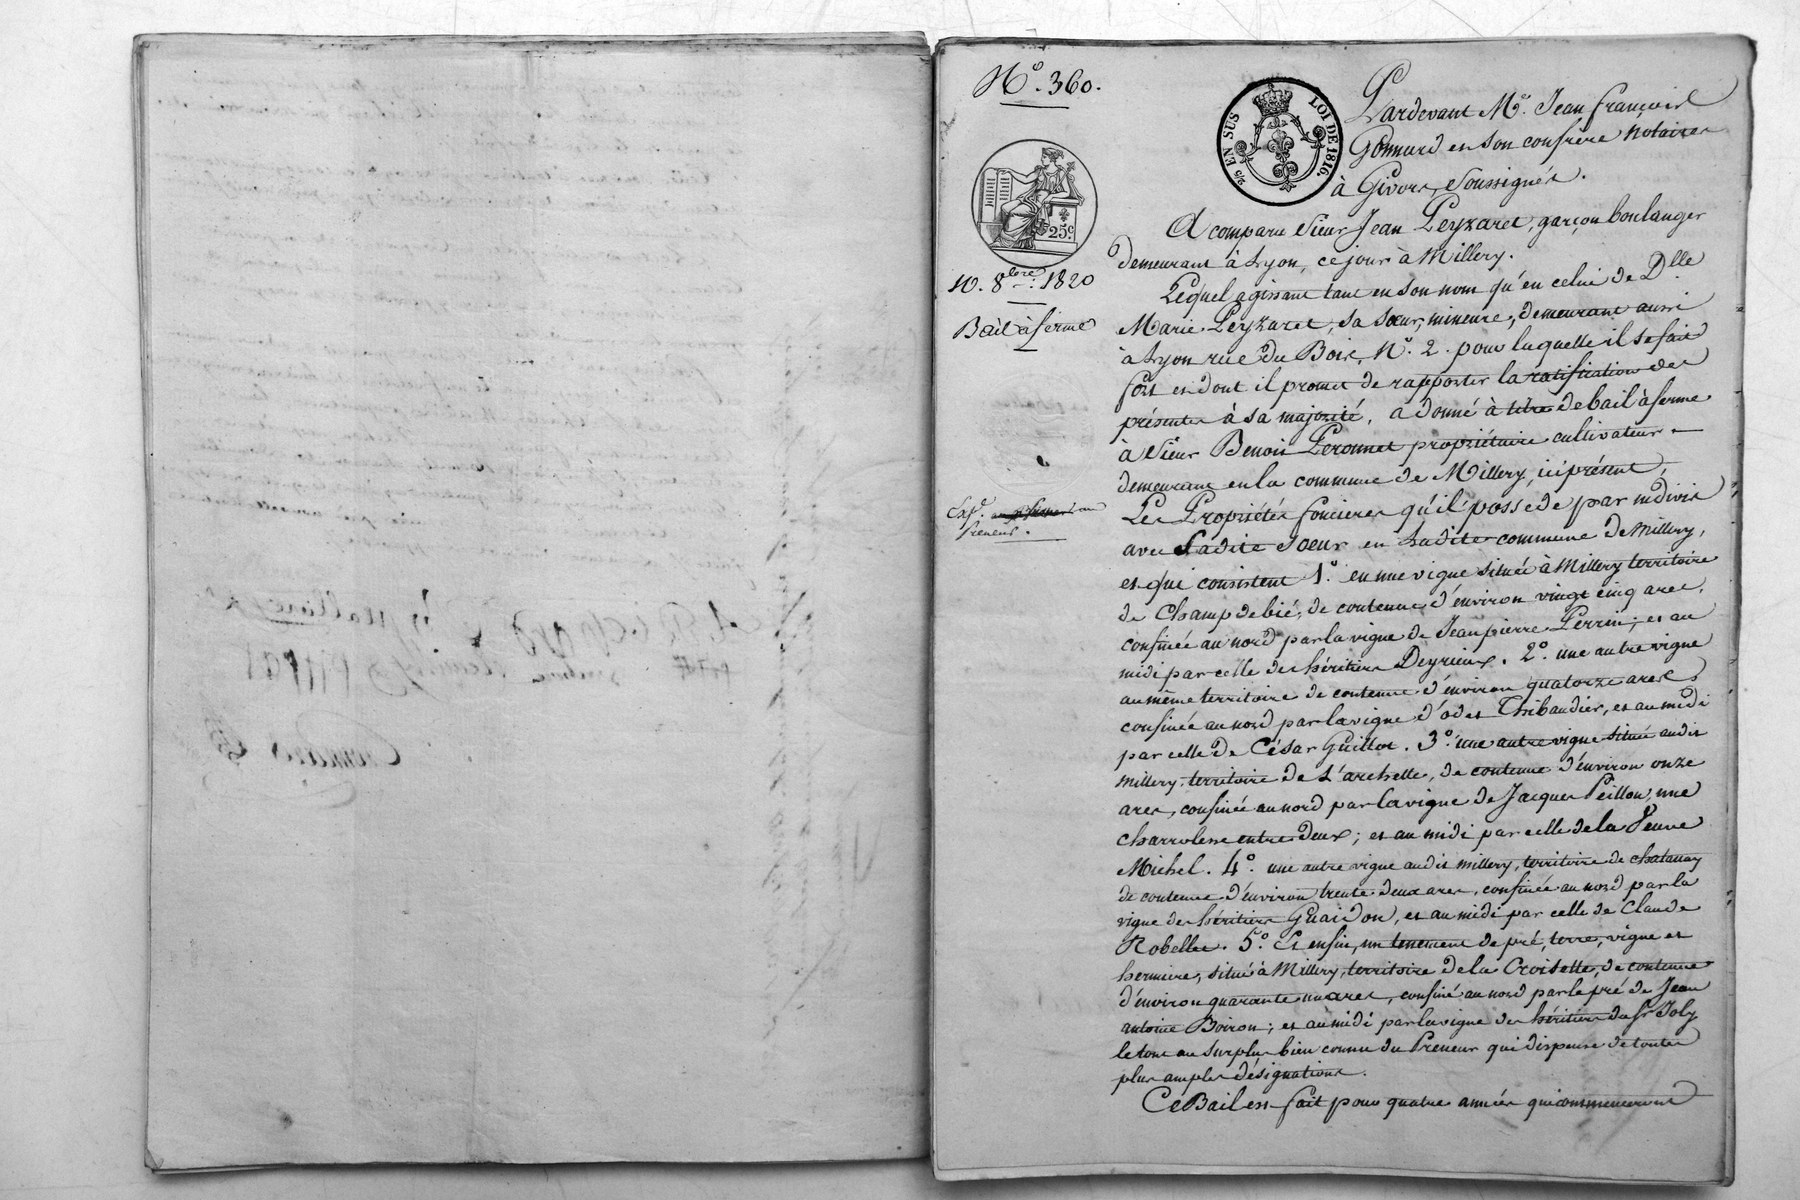 N.º 360.
EN SUS
LOI DE 1816.
25c
10. 8bre 1820
Bail à ferme
Exp.
Preneur.
Pardevant M.e Jean françois
Gonnard et son confrère Notaires
à Givors, soussignés.
A comparu Sieur Jean Peyzaret, garçon boulanger
demeurant à Lyon, ce jour à Millery.
Lequel agissant tant en son nom qu'en celui de Dlle
Marie Peyzaret, sa sœur, mineure, demeurant aussi
à Lyon rue du Bois, N.º 2. pour laquelle il se fait
fort et dont il promet de rapporter la ratification des
présentes à sa majorité, a donné à titre de bail à ferme
à Sieur Benoit Peronnet propriétaire cultivateur
demeurant en la commune de Millery, ici présent,
Les Propriétés foncieres qu'il possede par indivis
avec Sadite Soeur en Ladite commune de Millery,
et qui consistent 1.º en une vigne située à Millery territoire
de Champ de bié, de contenue d'environ vingt cinq ares,
confinée au nord par la vigne de Jean pierre Perrin; et au
midi par celle des héritiers Deyrieux. 2.º une autre vigne
au même territoire de contenue d'environ quatorze ares,
confinée au nord par la vigne d'odet Thibaudier, et au midi
par celle de César Guillot. 3.º une autre vigne située audit
Millery, territoire de L'archelle, de contenue d'environ onze
ares, confinée au nord par la vigne de Jacques Peillon, une
charrolesse entre deux; et au midi par celle de la Veuve
Michel. 4.º une autre vigne audit millery, territoire de chatanay
de contenue d'environ trente deux ares, confinée au nord par la
vigne des héritiers Guaidon, et au midi par celle de Claude
Robelle. 5.º Et enfin, un tenement de pré, terre, vigne et
hermure, situé à Millery, territoire de la Croisette, de contenue
d'environ quarante un ares, confiné au nord par le pré de Jean
antoine Boiron; et au midi par la vigne des héritiers du Sr Joly
le tout au surplus bien connu du Preneur qui dispense de toutes
plus amples désignations.
Ce Bail est fait pour quatre années qui commenceront